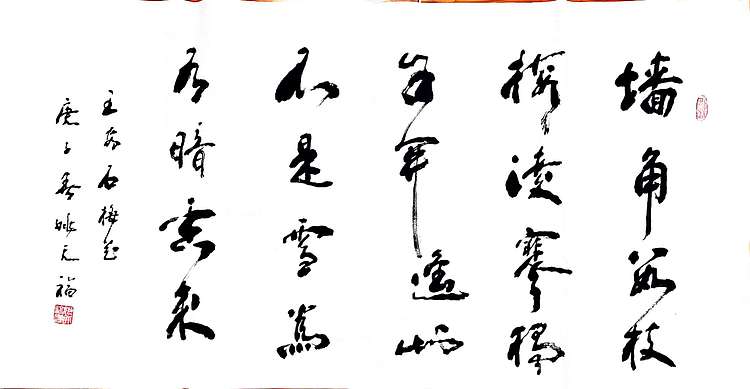 墙角数枝
梅凌寒獨
自開遥知
不是雪為
有暗香来
王安石梅花
庚子春姚元福